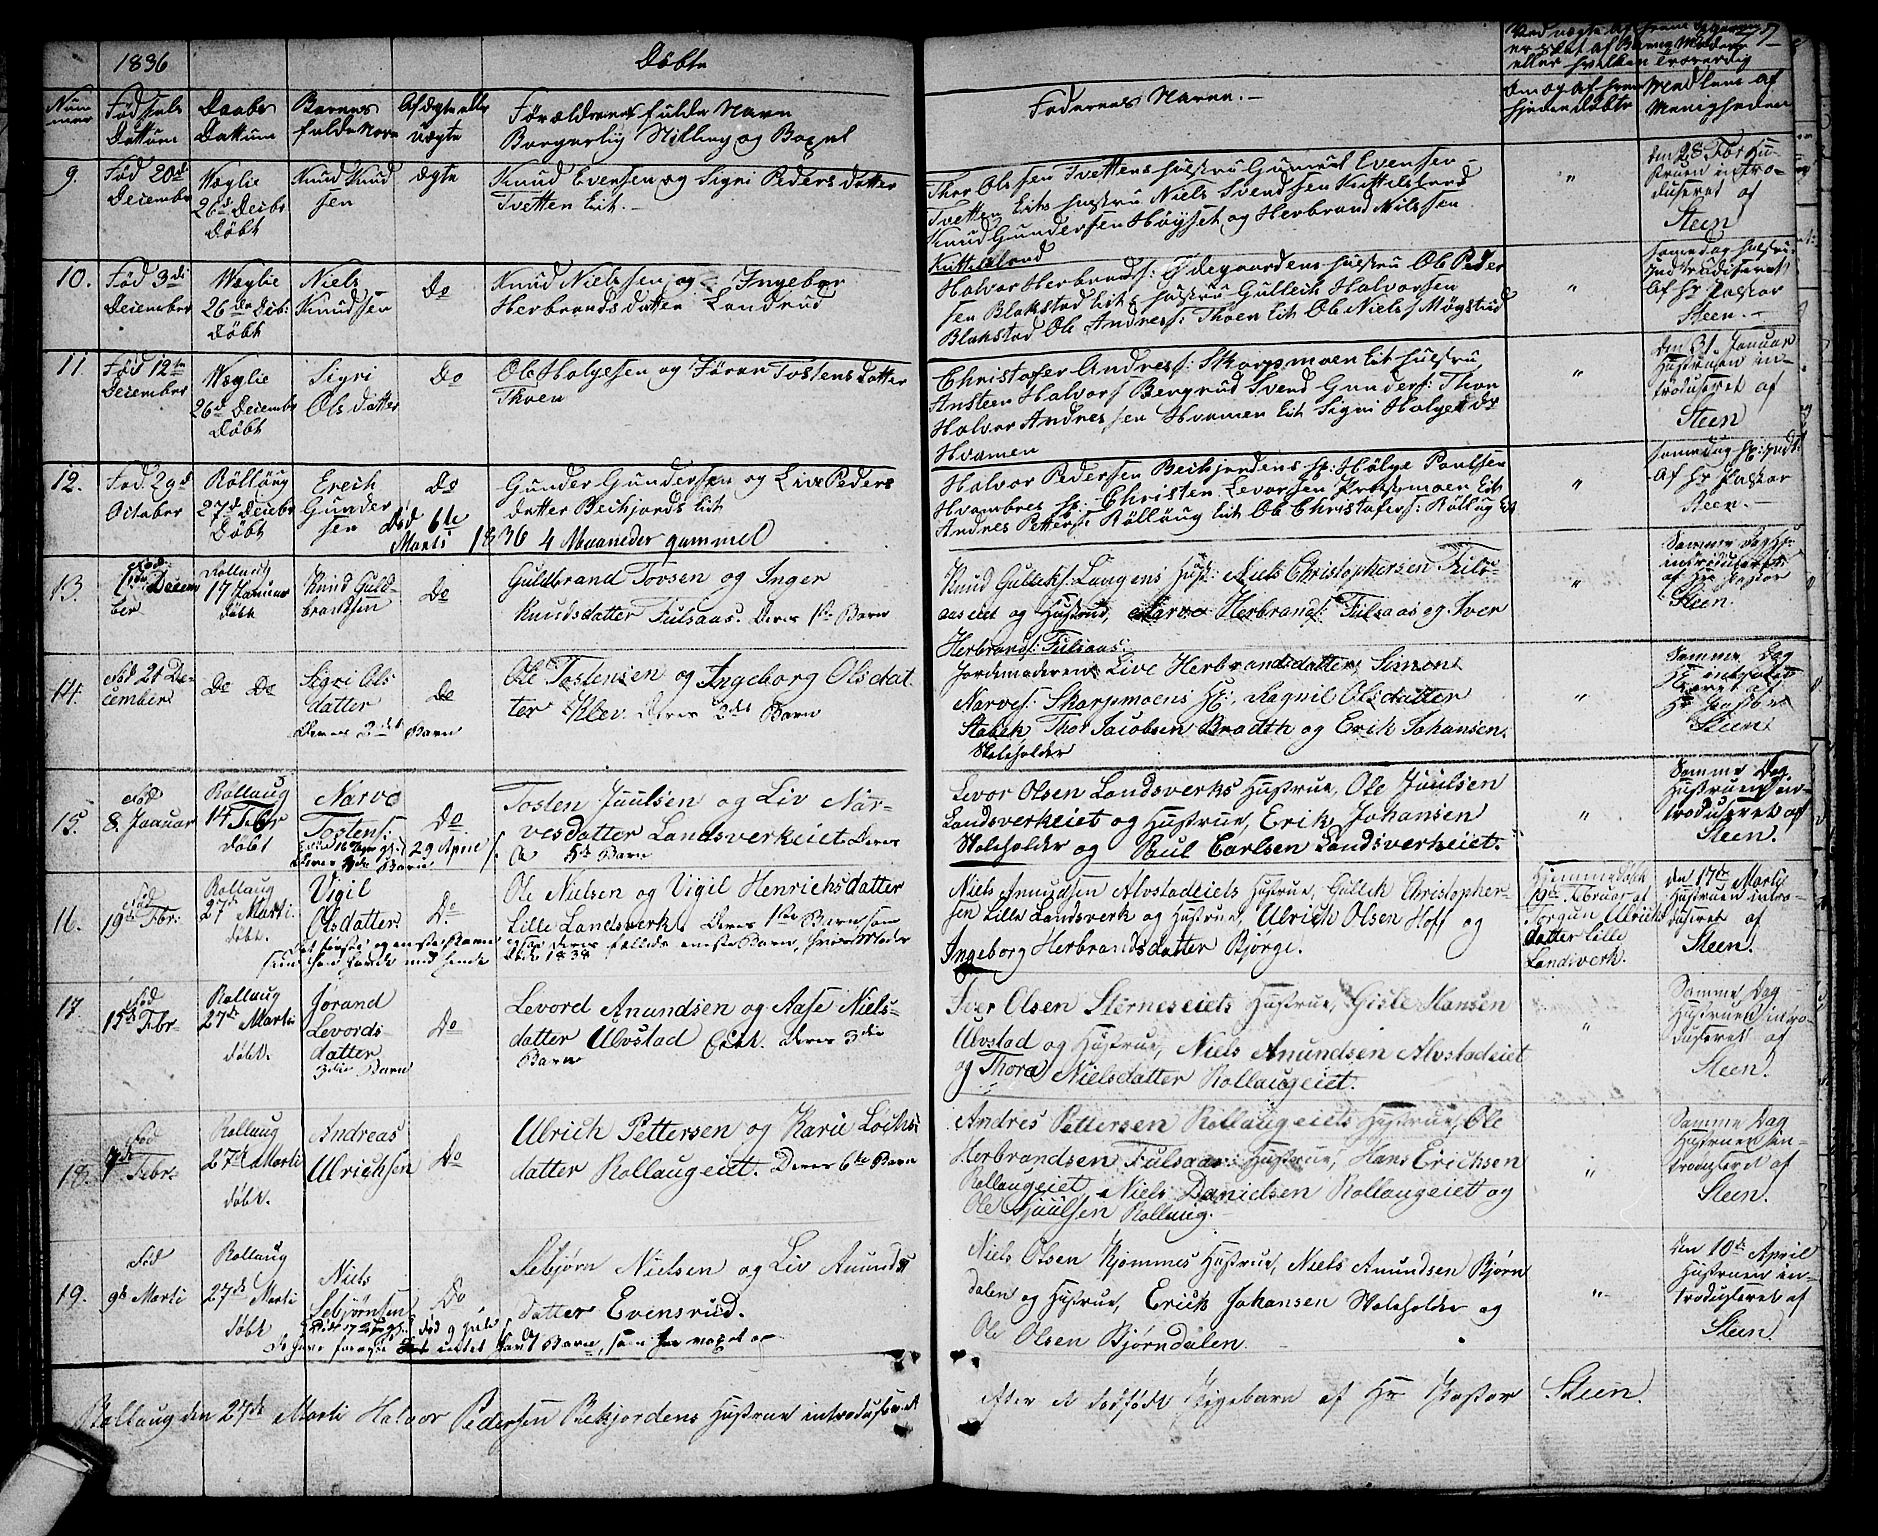 1836
Döbte
7
Ved uægte
er
eller hvilken troværdig
Num
mer
Födsels
Dattum
Daabs
Dattum
Barnets
fulde Navn
Afægte eller
uægte
Forældrenes fulde Navn
Borgerlig Stilling og Bopel
Fadernes Navne. —
Om og af hvem
hjemmedöbte
Medlem af
Menigheden
9.
Föd 20de
Deiember
Wæglie
26de Decbr
Döbt
Knud Knud
sen
ægte
Knud Evensen og Signi Peders datter
Tvetten Eit. —
Thor Olssen Tvettens hustru Gunnul Evensen
Tvetten Eits hustru Niels Svendssen Kittilsland
Knud Gundersen Höyset og Herbrand Nilssen
Kittilsland
"
den 28 Febr Hu-
struen intro-
duseret af
Steen
10.
Föd 3di
Deiember
Wæglie
26de Deb:
Döbt
Niels
Knudsen
Do
Knud Nielssen og Ingebor
Herbrands datter Landrud
Halvor Herbrands: Ödegaardens hustru Ole Peder
sen Blakstad Eits hustru Gullich Halvorsen
Blakstad Ole Andress: Thoen Eit Ole Niels: Mögstud
"
samedag hustru
Introduseret
Af Hr Pastor
Steen. —
11.
Föd 12te
Deiember
Wæglie
26de Deiembr
Döbt
Sigri
Ols datter
Do
Ole Holgesen og Jöran Tostens datter
Thoen
Christofer Andress: Skorpmoen Eit hustru
Ansteen Halvors: Bergrud Svend Gunders: Thon
Halvor Andressen Hvamen Eit Signi Holgets dr
Hvamen
"
Den 31 Januar
Hustruen in-
troduseret af
Steen
12.
Föd 29d
October
Röllöug
27de Deiebr
Döbt
Erech
Gunder
sen
Do
Död 6te
Marts 1836 4 Maaneder gammel
Gunder Gunderssen og Live Peders
datter Bechjords Eit
Halvor Pederssen Bechjordens h: Hölge Poulsen
Hvambres h: Christen Levorsen Præstemoen Eit
Andres Petters: Röllöug Eit Ole Christofers: Röllug Eit
"
samedag h: indt
Af Hr Pastor
Steen. —
13.
Föd
1ste Deiem
ber
Rollaug
17 Januar
döbt
Knud Guld-
brandsen
Do
Guldbrand Tovsen og Inger
Knudsdatter Fulsaas. Deres 1ste Barn
Knud Gulleks: Langens Hust: Niels Christophersen Fuls-
aaseiet og Hustrue, Narve Herbrands: Fulsaas og Iver
Herbrands: Fulsaas:
"
Samme Dag H:
introduseret
af Hr Pastor
Steen.
14.
Föd 21 De-
cember
Do Do
Sigri Ols
datter
Deres 2det Barn
Do
Ole Tostensen og Ingeborg Olsdat
ter Klev. Deres 2det Barn
Jordemoderen Live Herbrandsdatter, Simon
Narves: Skorpmoens H:, Ragnil Olsdatter
Stabek Thor Jacobsen Bradth og Erik Johansen
Skoleholder
"
Samme Dag
H: introdu
ceret af
Hr Pastor
Steen.
15.
Föd
8. Januar
Rollaug
14 Febr
döbt
Narve
Tostens:
Do
29 April
Tosten Juulsen og Liv Nar-
vesdatter Landsverkeiet Deres
5te Barn
Levor Olsen Landsverks Hustrue, Ole Juulsen
Landsverkeiet og Hustrue, Erik Johansen
Skoleholder og Paul Carlsen Landsverkeiet.
"
Samme Dag
Hustruen in-
troduseret af
Steen.
16.
Föd
19de Febr:
Rollaug
27de Marti.
döbt.
Vigil
Olsdatter:
Do
Ole Nielsen og Vigil Henrichsdatter
Lille Landsverk. Deres 1ste Barn som
Döde 1838
Niels Anundsen Alvstadeiets Hustrue, Gullich Christopher-
sen Lille Landsverk og Hustrue, Ulrich Olsen Hoff og
Ingeborg Herbrandsdatter Björge.
Hjemmedöbt
19de Februar af
Torgun Ulrichs
datter Lille
Landsverk.
den 17de Marti
Hustruen intro-
duseret af
Steen.
17
Föd
15de Febr.
Rollaug
27de Marti
döbt.
Jörand
Levords-
datter
3die Barn
Do
Levord Anundsen og Aase Niels-
datter Ulvstad Eiet. Deres 3die
Barn
Iver Olsen Sterneseiets Hustrue, Gisle Hansen
Ulvstad og Hustrue, Niels Anundsen Alvstadeiet
og Thora Nielsdatter Rollaugeiet.
"
Samme Dag
Hustruen intro-
duseret af
Steen.
18.
Föd
7de Febr.
Rollaug
27de Marti
döbt.
Andreas
Ulrichsen
Do
Ulrich Pettersen og Kari Lochs
datter Rollaugeiet. Deres 6te Barn
Andres Pettersen Rollaugeiets Hustrue, Ole
Herbrandsen Fulsaas: Hustrue, Hans Erichsen
Rollaugeiet, Niels Danielsen Rollaugeiet og
Ole Gjuulsen Rollaug.
"
Samme Dag
Hustruen in-
troduseret af
Steen.
19.
Föd
9de Marti
Rollaug
27de Marti
döbt
Niels
Sebjörnsen
Do
död 9 Juli
Sebjörn Nielsen og Liv Anunds
datter Evensrud.
Niels Olsen Kjömmes Hustrue, Niels Anundsen Björn
dalen og Hustrue, Erich Johansen Skoleholder og
Ole Olsen Björndalen.
"
Den 10de April
Hustruen in-
troduseret af
Steen.
Rollaug den 27de Marti Halvor Pedersen Bekjordens Hustrue introduseret
efter et dödfödt Pigebarn af Hr Pastor Steen.